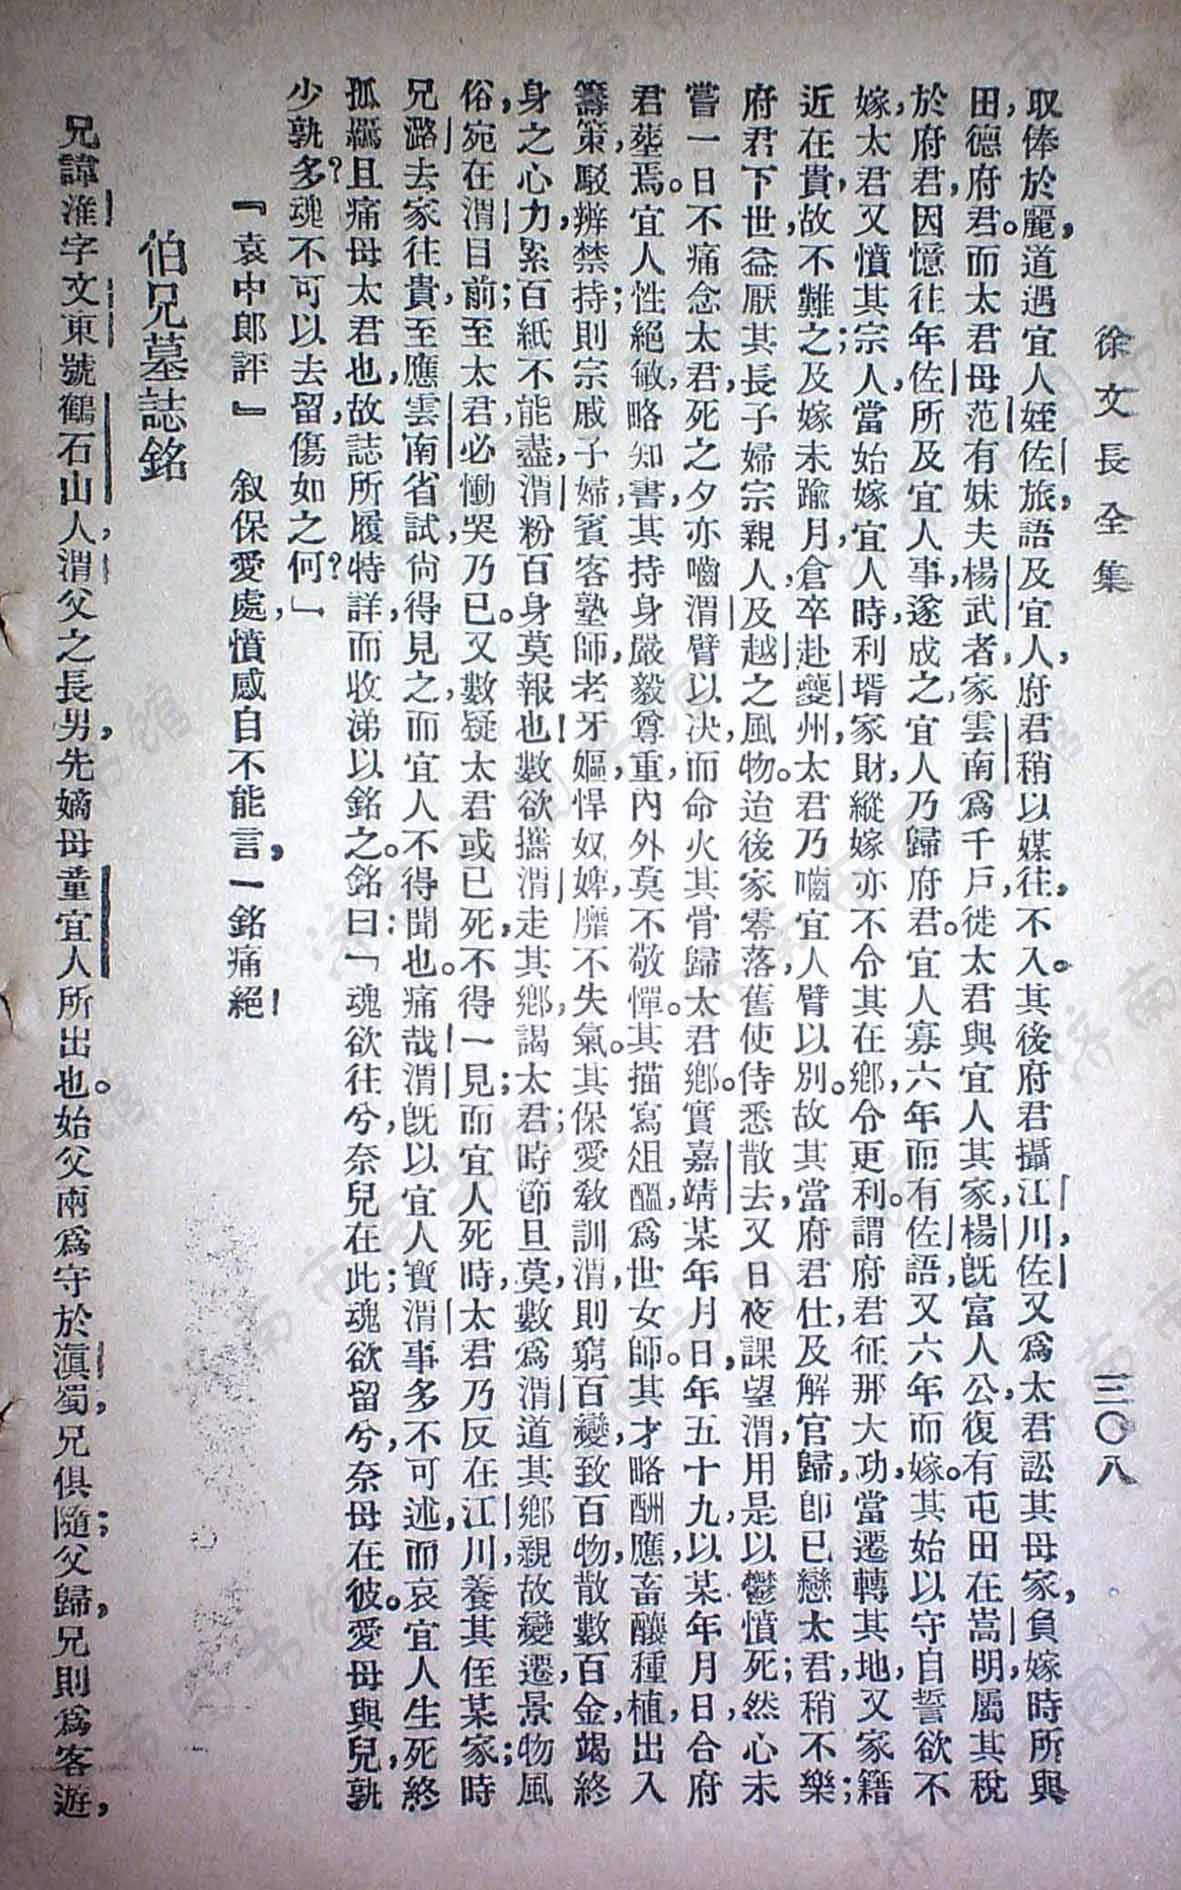 徐文長全集
三〇八
取俸於麗，道遇宜人姪佐旅，語及宜人，府君稍以媒往，不入。其後府君攝江川，佐又爲太君訟其母家，負嫁時所與
田，德府君。而太君母范有妹夫楊武者，家雲南爲千戶，徙太君與宜人其家，楊旣富人，公復有屯田在嵩明，屬其稅
於府君，因憶往年佐所及宜人事，遂成之，宜人乃歸府君。宜人寡六年而有佐語，又六年而嫁。其始以守自誓，欲不
嫁，太君又憤其宗人，當始嫁宜人時，利壻家財，縱嫁亦不令其在鄉，令更利。謂府君征那大功，當遷轉其地，又家籍
近在貴，故不難之；及嫁未踰月，倉卒赴夔州，太君乃嚙宜人臂以別。故其當府君仕，及解官歸，卽已戀太君，稍不樂；
府君下世，益厭其長子婦宗親人，及越之風物。迨後家零落，舊使侍悉散去，又日夜課望渭，用是以鬱憤死；然心未
嘗一日不痛念太君，死之夕，亦嚙渭臂以决，而命火其骨歸太君鄉。實嘉靖某年月日，年五十九，以某年月日，合府
君葬焉。宜人性絕敏，略知書，其持身嚴毅尊重，內外莫不敬憚。其描寫俎醞，爲世女師。其才略酬應，畜釀種植，出入
籌策，駁辨禁持；則宗戚子婦，賓客塾師，老牙嫗，悍奴婢，靡不失氣。其保愛敎訓渭，則窮百變，致百物，散數百金，竭終
身之心力，累百紙不能盡，渭粉百身莫報也！數欲攜渭走其鄉，謁太君；時節旦莫，數爲渭道其鄉親故變遷，景物風
俗，宛在渭目前；至太君，必慟哭乃已。又數疑太君或已死，不得一見，而宜人死時，太君乃反在江川，養其侄某家；時
兄潞去家往貴，至應雲南省試，尙得見之，而宜人不得聞也。痛哉！渭旣以宜人寶渭事多不可述，而哀宜人生死終
孤羈，且痛母太君也，故誌所履特詳，而收涕以銘之。銘曰：「魂欲往兮，奈兒在此；魂欲留兮，奈母在彼。愛母與兒，孰
少孰多？魂不可以去留，傷如之何？」
『袁中郎評』　叙保愛處，憤感自不能言，一銘痛絕！
伯兄墓誌銘
兄諱淮，字文東，號鶴石山人，渭父之長男，先嫡母童宜人所出也。始父兩爲守於滇蜀，兄俱隨；父歸，兄則爲客遊，